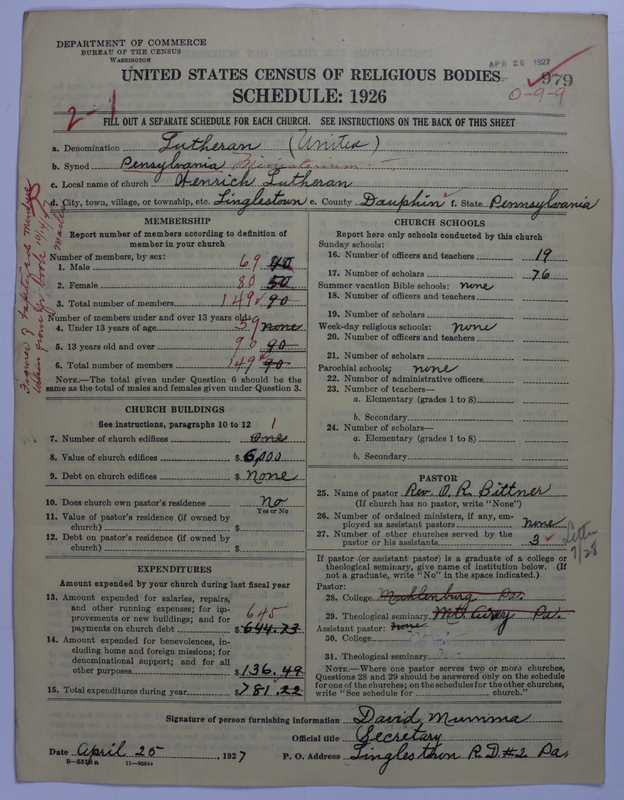 DEPARTMENT OF COMMERCE
BUREAU OF THE CENSUS
WASHINGTON
APR 26 1927
979
UNITED STATES CENSUS OF RELIGIOUS BODIES
SCHEDULE: 1926
2-1
0-9-9
FILL OUT A SEPARATE SCHEDULE FOR EACH CHURCH. SEE INSTRUCTIONS ON THE BACK OF THIS SHEET
a. Denomination Lutheran (United)
b. Synod Pensylvania Ministerium
c. Local name of church Henrich Lutheran
d. City, town, village, or township, etc. Linglestown e. County Dauphin f. State Pennsylvania
MEMBERSHIP
Report number of members according to definition of member in your church
Number of members, by sex:
1. Male 69 40
2. Female 80 50
3. Total number of members 149 90
Number of members under and over 13 years old:
4. Under 13 years of age 59 none
5. 13 years old and over 90 90
6. Total number of members 149 90
NOTE.—The total given under Question 6 should be the same as the total of males and females given under Question 3.
CHURCH BUILDINGS
See instructions, paragraphs 10 to 12
7. Number of church edifices 1 one
8. Value of church edifices $ 6,000
9. Debt on church edifices $ None
10. Does church own pastor's residence No
Yes or No
11. Value of pastor's residence (if owned by church) $
12. Debt on pastor's residence (if owned by church) $
EXPENDITURES
Amount expended by your church during last fiscal year
13. Amount expended for salaries, repairs, and other running expenses; for improvements or new buildings; and for payments on church debt $ 645 644.73
14. Amount expended for benevolences, including home and foreign missions; for denominational support; and for all other purposes $ 136.49
15. Total expenditures during year $ 781.22
CHURCH SCHOOLS
Report here only schools conducted by this church
Sunday schools:
16. Number of officers and teachers 19
17. Number of scholars 76
Summer vacation Bible schools: none
18. Number of officers and teachers
19. Number of scholars
Week-day religious schools: none
20. Number of officers and teachers
21. Number of scholars
Parochial schools: none
22. Number of administrative officers
23. Number of teachers—
a. Elementary (grades 1 to 8)
b. Secondary
24. Number of scholars—
a. Elementary (grades 1 to 8)
b. Secondary
PASTOR
25. Name of pastor Rev. O. R. Bittner
(If church has no pastor, write "None")
26. Number of ordained ministers, if any, employed as assistant pastors none
27. Number of other churches served by the pastor or his assistants 3
Letter
7/28
If pastor (or assistant pastor) is a graduate of a college or theological seminary, give name of institution below. (If not a graduate, write "No" in the space indicated.)
Pastor:
28. College Muhlenburg Pa.
29. Theological seminary Mt. Airy Pa.
Assistant pastor: none
30. College
31. Theological seminary
NOTE.—Where one pastor serves two or more churches, Questions 28 and 29 should be answered only on the schedule for one of the churches; on the schedules for the other churches, write "See schedule for church."
Signature of person furnishing information David Mumma
Official title Secretary
Date April 25, 1927 P. O. Address Linglestown R.D.#2 Pa.